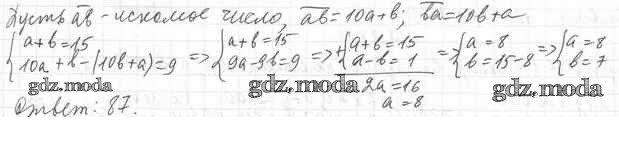 Пусть ab - искомое число, ab = 10a+b; ba = 10b+a
{a+b=15 => {a+b=15 => +{a+b=15 => {a=8 => {a=8
10a+b-(10b+a)=9 9a-9b=9 a-b=1 b=15-8 b=7
gdz.moda gdz.moda 2a=16 gdz.moda
a=8
Ответ: 87.